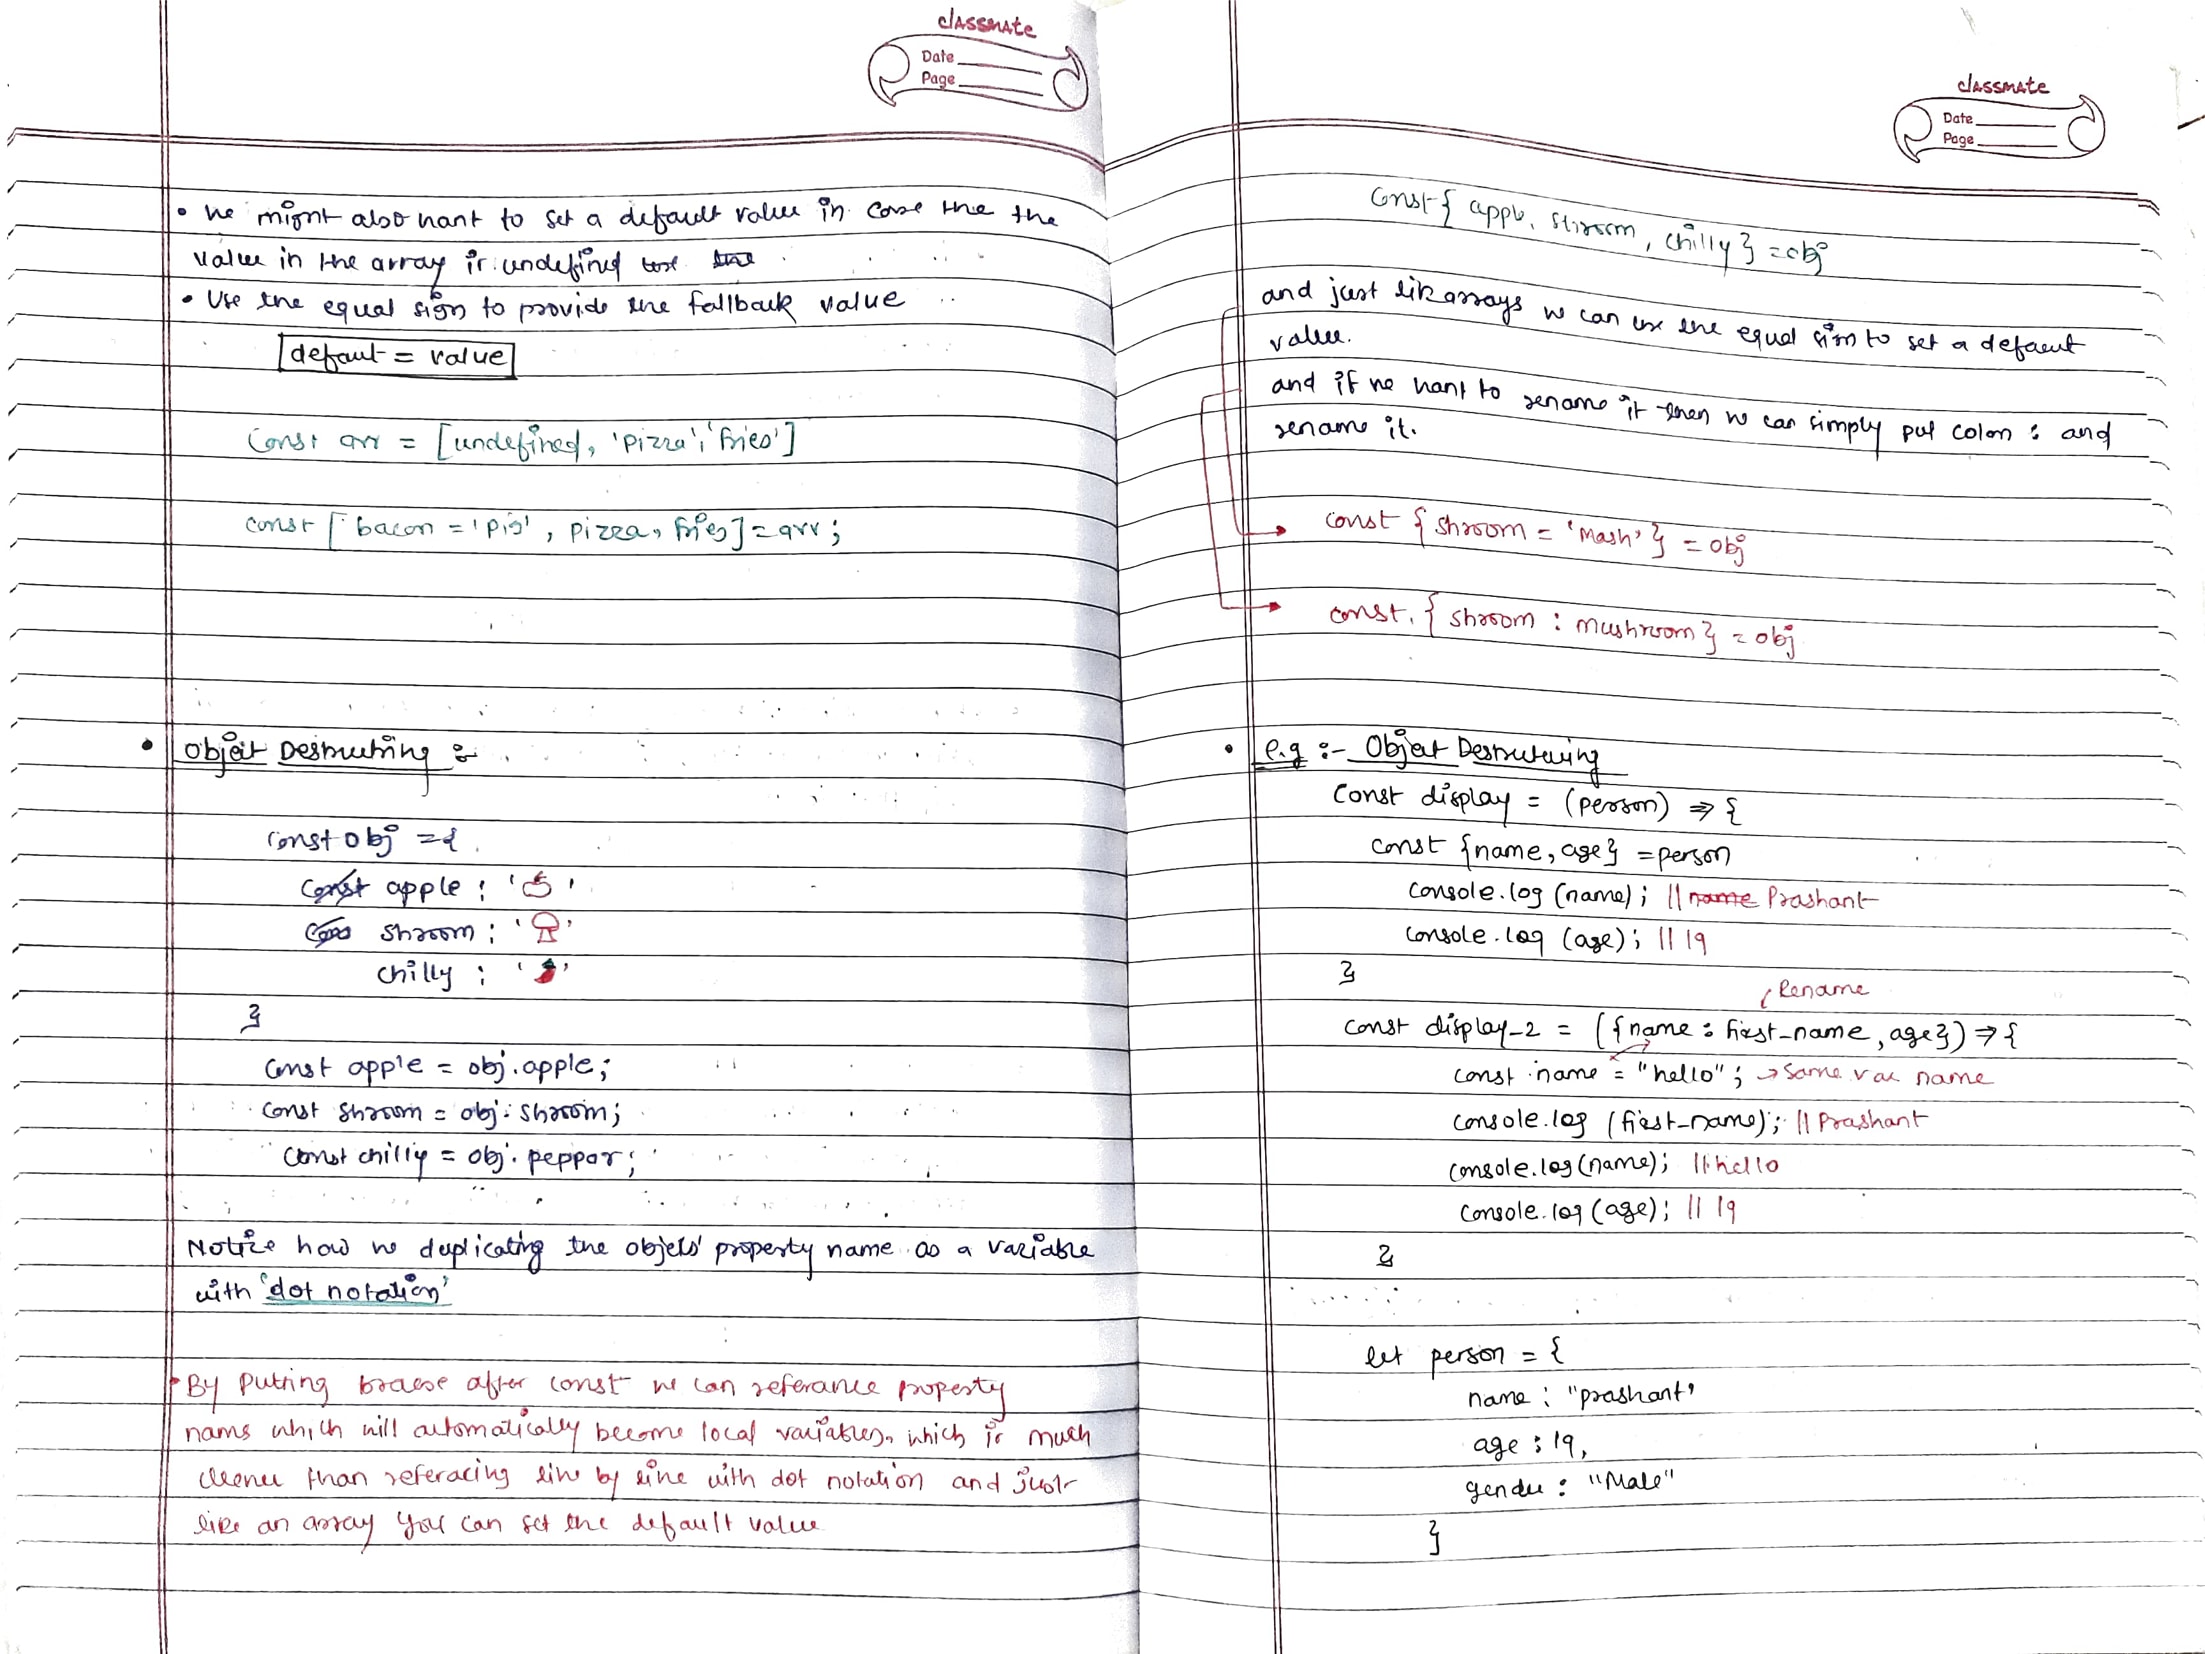 classmate
Date
Page
• we might also want to set a default value in case the the
value in the array is undefined
• Use the equal sign to provide the fallback value
defaut = value
const arr = [undefined, 'pizza', 'fries']
const [ bacon = 'pig', pizza, fries] = arr;
• Object Destructring :-
const obj = {
const apple : '🍎'
shroom : '🍄'
chilly : '🌶'
}
const apple = obj.apple;
const shroom = obj.shroom;
const chilly = obj.peppar;
Notice how we duplicating the objets' property name as a variable
with 'dot notation'
• By putting braese after const we can referance property
nams which will automatically become local variables, which is much
cleaner than referacing line by line with dot notation and just
like an array you can set the default value
classmate
Date
Page
const { apple, shroom, chilly } = obj
and just lik arrays we can use the equal sign to set a defaut
value.
and if we want to rename it then we can simply put colon : and
rename it.
const { shroom = 'Mash' } = obj
const { shroom : mushroom } = obj
• e.g :- Object Destruturing
const display = (person) => {
const {name, age} = person
console.log (name); // name Prashant
console.log (age); // 19
}
Rename
const display_2 = ({name : first_name, age}) => {
const name = "hello"; → Same var name
console.log (first_name); // Prashant
console.log (name); // hello
console.log (age); // 19
}
let person = {
name : "prashant'
age : 19,
gender : "Male"
}